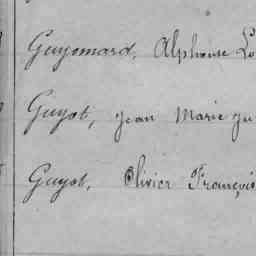 Guyomard, Alphonse Lo
Guyot, Jean Marie Ju
Guyot, Olivier François